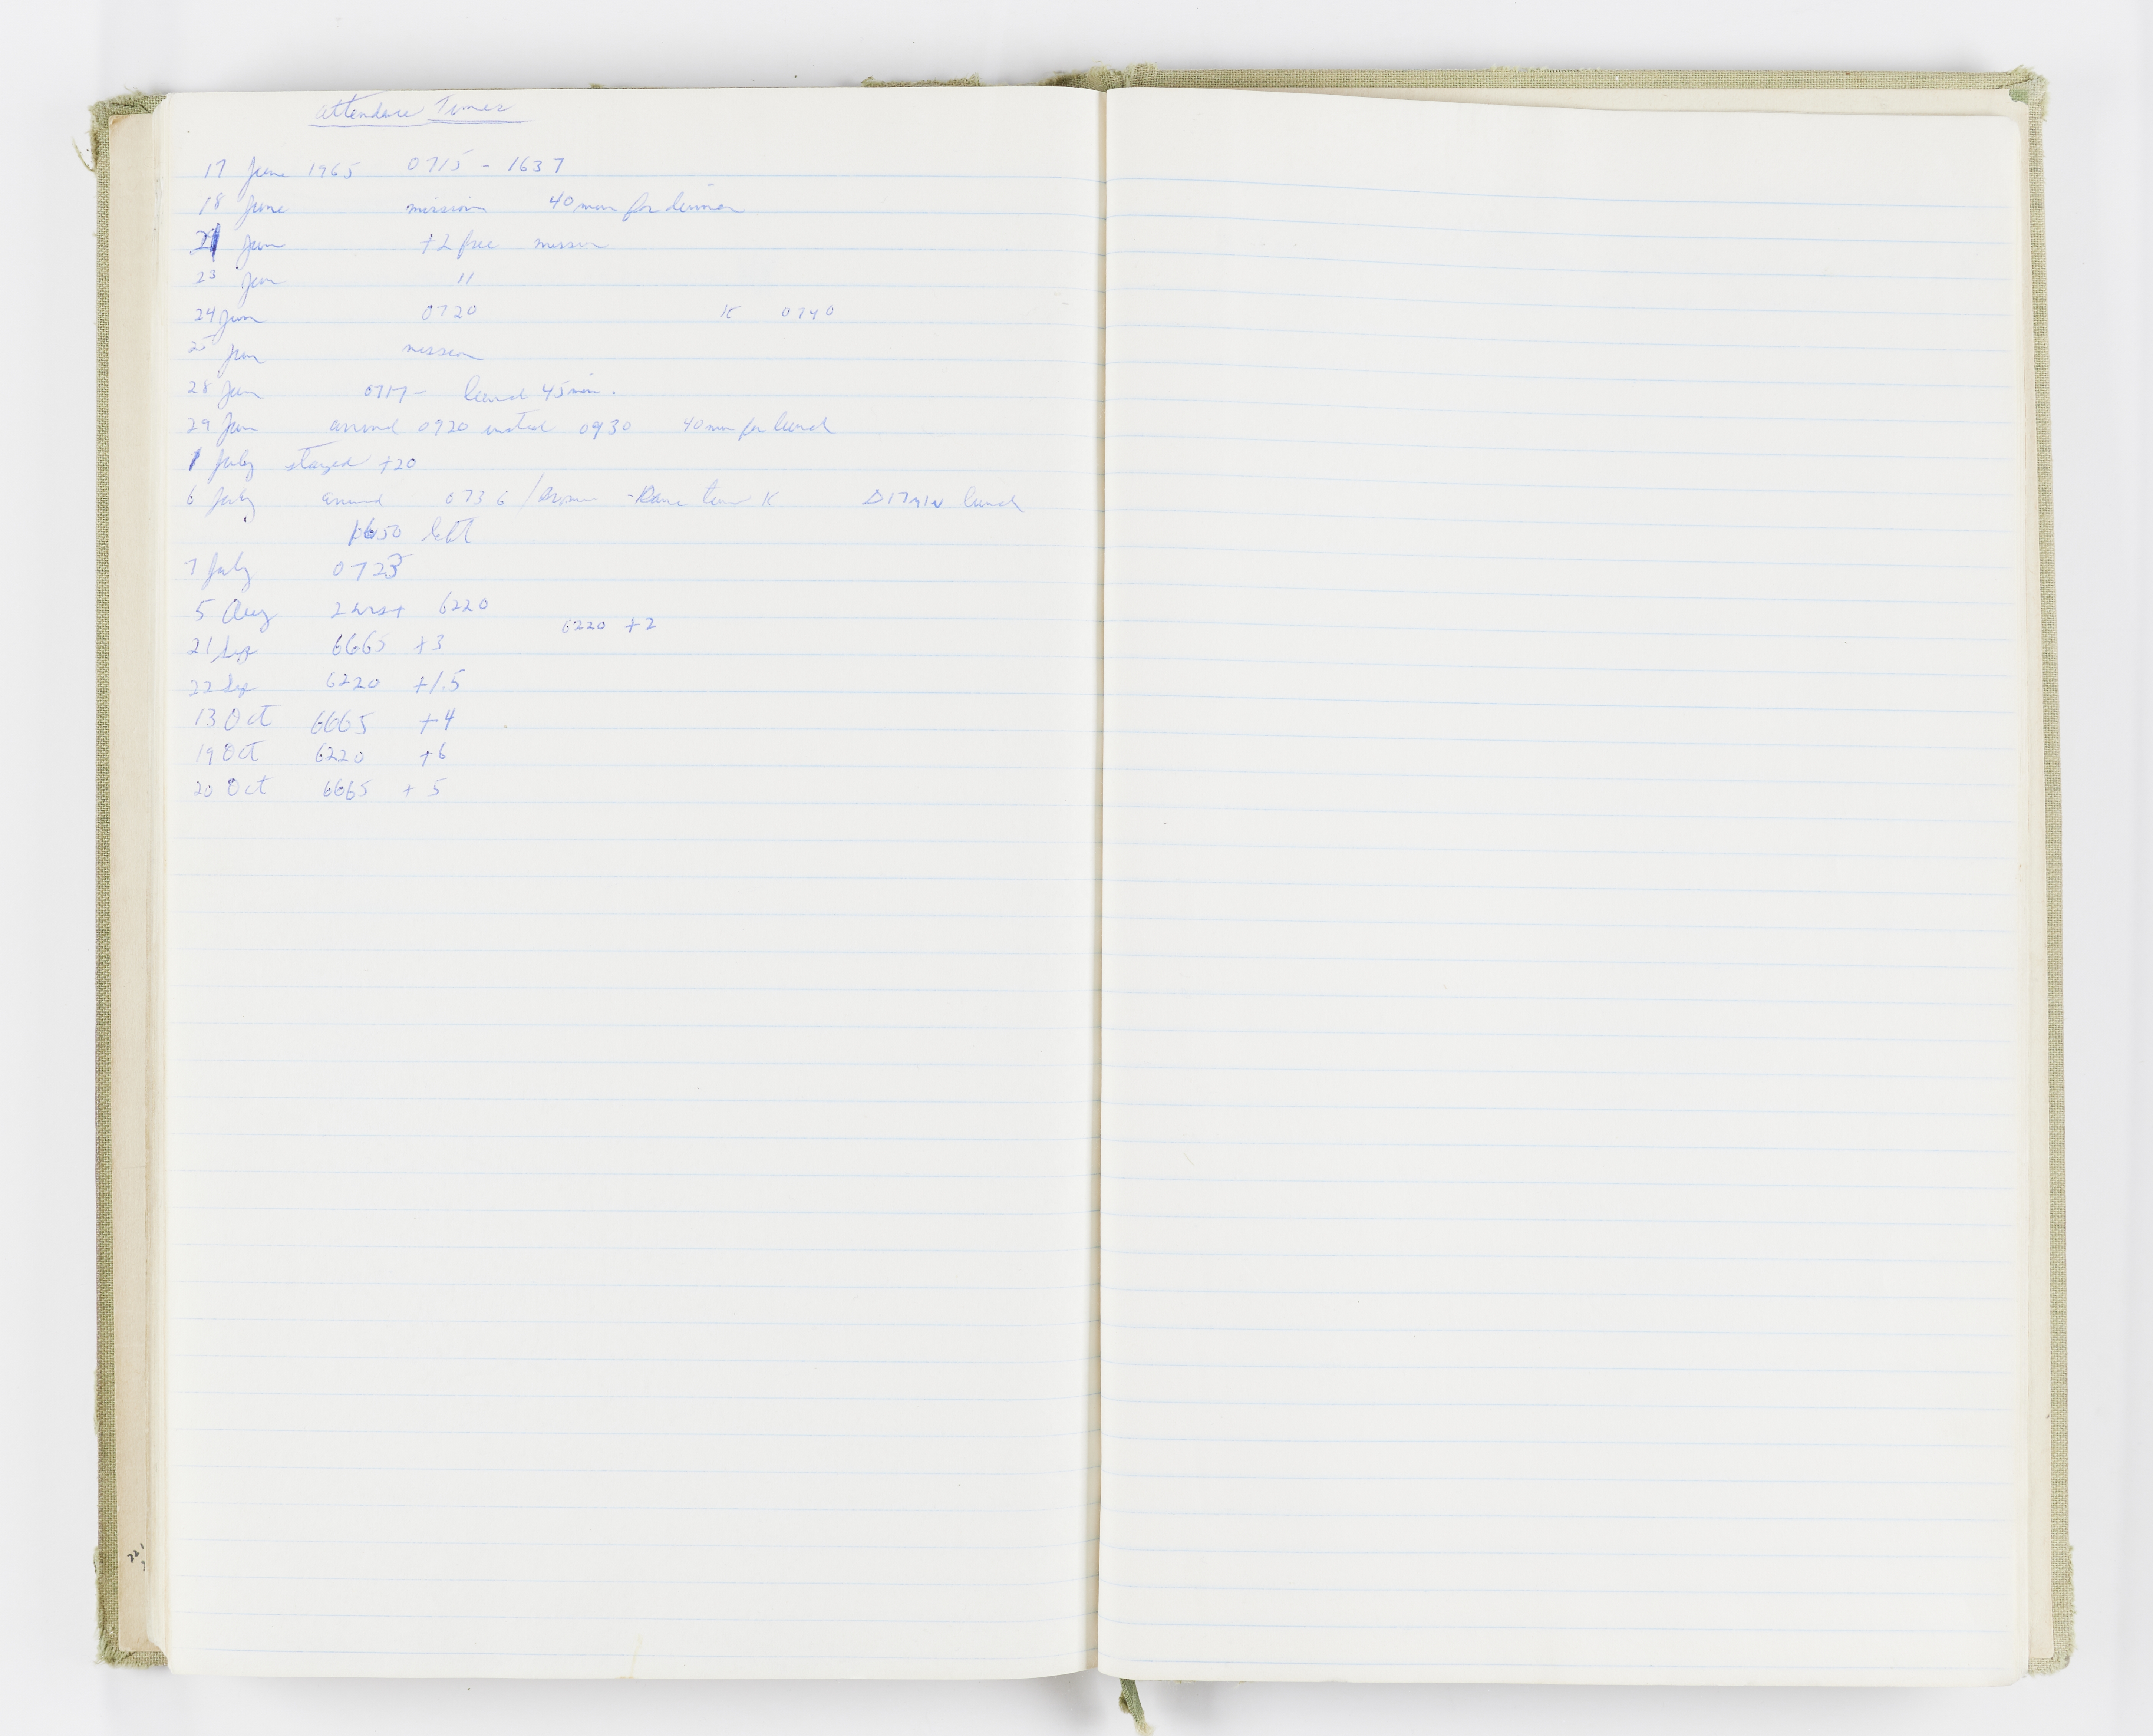 Attendance Times
17 June 1965 0715 - 1637
18 June mission 40 min for dinner
21 Jun +2 free mission
23 Jun 11
24 Jun 0720 K 0740
25 Jun mission
28 Jun 0717- lunch 45 min.
29 Jun arrived 0920 instead 0930 40 min for lunch
1 July stayed +20
6 July arrived 0736 / K Δ17 MIN lunch
1650 left
7 July 0723
5 Aug 2 hrs+ 6220
6220 +2
21 Sep 6665 +3
22 Sep 6220 +1.5
13 Oct 6665 +4
19 Oct 6220 +6
20 Oct 6665 + 5
221